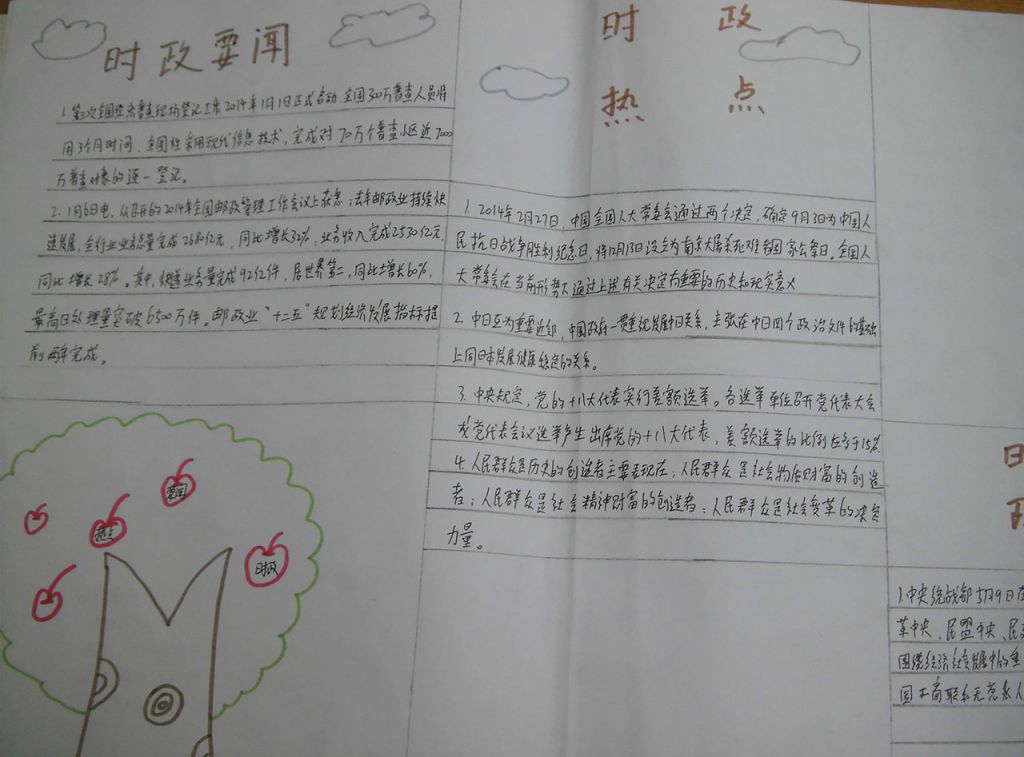 时政要闻
1.第三次全国经济普查现场登记工作2014年1月1日正式启动.全国300万普查人员将
用3个月时间、全国性采用现代信息技术,完成对70万个普查小区近7000
万普查对象的逐一登记。
2. 1月6日电,从召开的2014年全国邮政管理工作会议上获悉;去年邮政业持续快
速发展,全行业业务总量完成2680亿元,同比增长32%,业务收入完成2530亿元.
同比增长28%。其中,快递业务量完成92亿件,居世界第二,同比增长60%,
最高日处理量突破6500万件。邮政业“十二五”规划经济发展指标提
前两年完成。
时政
热点
1. 2014年2月27日,中国全国人大常委会通过两个决定,确定9月3日为中国人
民抗日战争胜利纪念日,将12月13日设立为南京大屠杀死难者国家公祭日。全国人
大常委会在当前形势下通过上述有关决定有重要的历史和现实意义
2. 中日互为重要近邻,中国政府一贯重视发展中日关系,主张在中日四个政治文件的基础
上同日本发展健康稳定的关系。
3. 中央规定,党的十八大代表实行差额选举。各选举单位召开党代表大会
或党代表会议选举产生出席党的十八大代表,差额选举的比例应多于15%
4. 人民群众是历史的创造者主要表现在:人民群众是社会物质财富的创造
者;人民群众是社会精神财富的创造者;人民群众是社会变革的决定
力量。
要闻
热点
时政
1.中央统战部5月9日在
革中央、民盟中央、民
围绕经济社会发展中的重
国工商联和无党派人